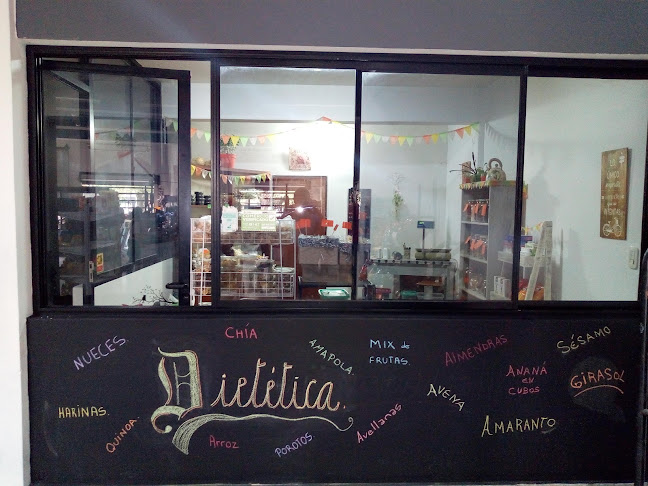 CHÍA
NUECES
AMAPOLA.
MIX de
FRUTAS.
ALMENDRAS
SÉSAMO
Dietética.
ANANÁ
EN
CUBOS
GIRASOL
HARINAS.
QUINOA.
Arroz
POROTOS.
Avellanas
AVENA
AMARANTO